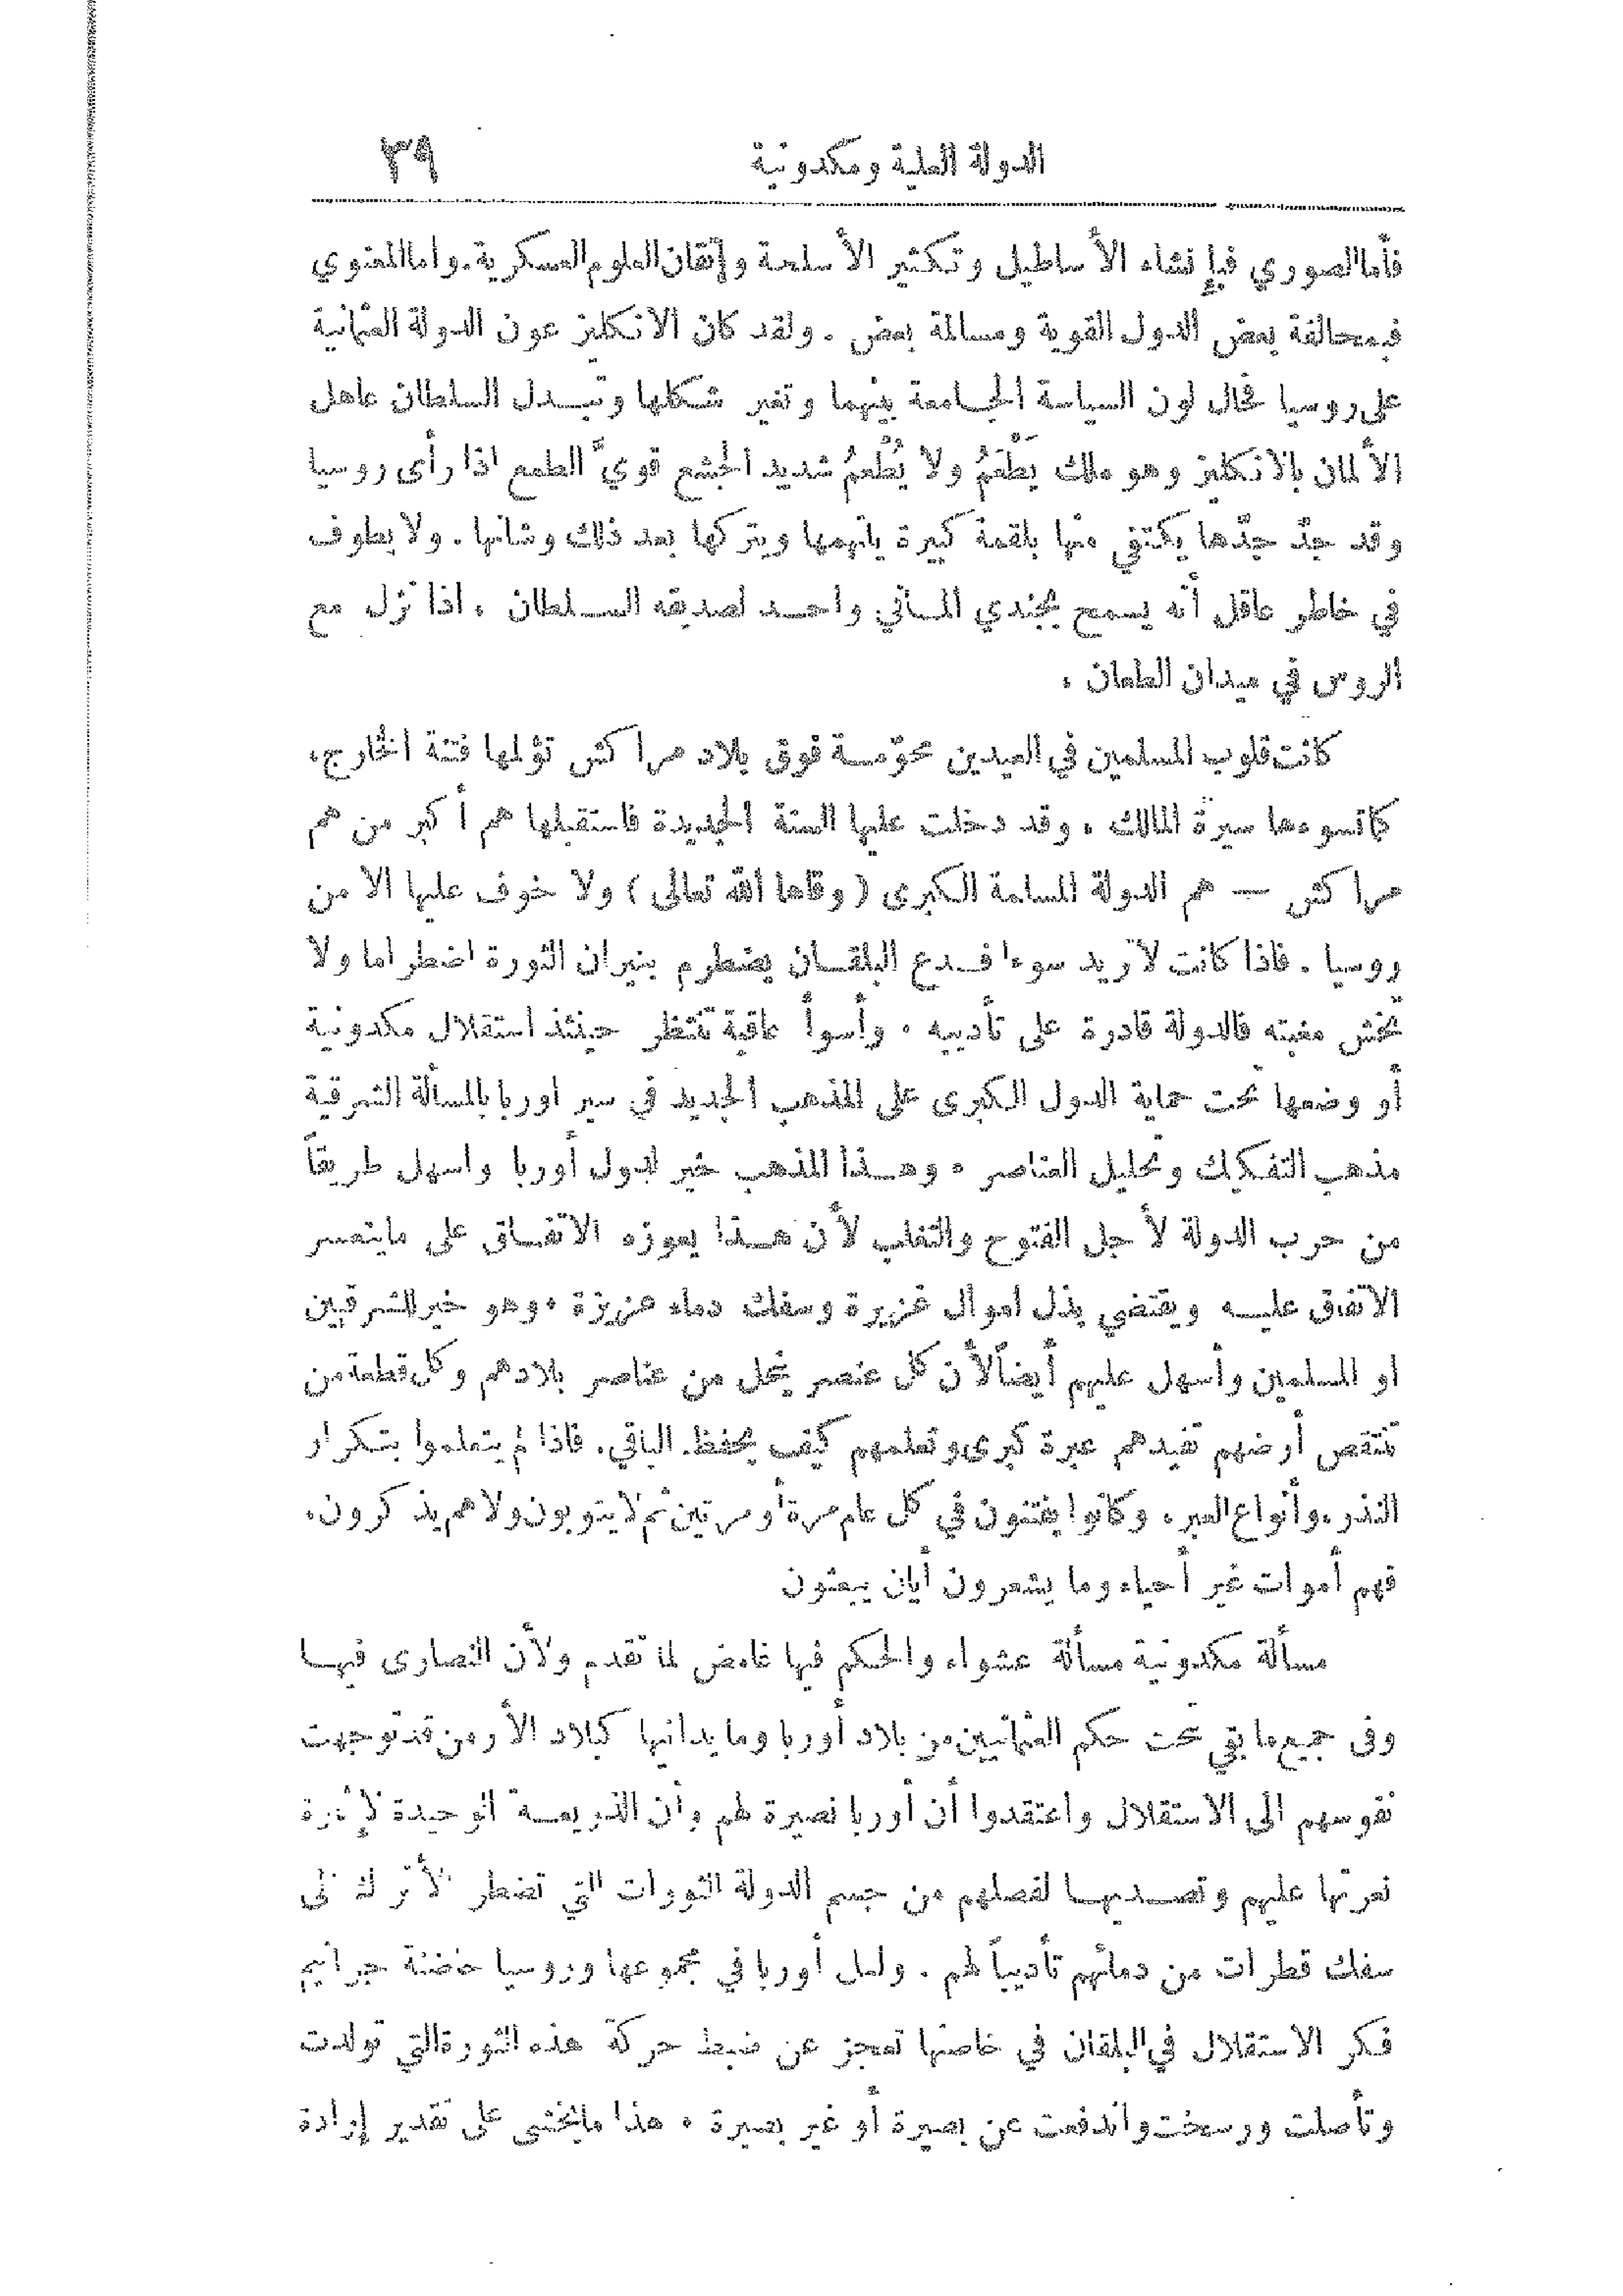 الدولة العلية ومكدونية ٣٩
فأما الصوري فبإنشاء الأساطيل وتكثير الأسلحة وإتقان العلوم العسكرية. وأما المعنوي
فبمحالفة بعض الدول القوية ومسالمة بعض . ولقد كان الانكليز عون الدولة العثمانية
على روسيا فحال لون السياسة الجامعة بينهما وتغير شكلها وتبدل السلطان عاهل
الألمان بالانكليز وهو ملك يَطْعَمُ ولا يُطْعِمُ شديد الجشع قويّ الطمع اذا رأى روسيا
وقد جدّ جدّها يكتفي منها بلقمة كبيرة يلتهمها ويتركها بعد ذلك وشأنها . ولا يطوف
في خاطر عاقل أنه يسمح بجندي الماني واحد لصديقه السلطان ، اذا نزل مع
الروس في ميدان الطعان .
كانت قلوب المسلمين في العيدين محوّمة فوق بلاد مراكش تؤلمها فتنة الخارج،
كما تسوءها سيرة المالك . وقد دخلت عليها السنة الجديدة فاستقبلها هم أكبر من هم
مراكش — هم الدولة المسلمة الكبرى (وقاها الله تعالى) ولا خوف عليها الا من
روسيا . فاذا كانت لا تريد سوءا فدع البلقان يضطرم بنيران الثورة اضطراما ولا
تخش مغبته فالدولة قادرة على تأديبه . وأسوأ عاقبة تنتظر حينئذ استقلال مكدونية
أو وضعها تحت حماية الدول الكبرى على المذهب الجديد في سير اوربا بالمسألة الشرقية
مذهب التفكيك وتحليل العناصر . وهذا المذهب خير لدول أوربا واسهل طريقاً
من حرب الدولة لأجل الفتوح والتغلب لأن هذا يعوزه الاتفاق على ما يتعسر
الاتفاق عليه ويقتضي بذل اموال غزيرة وسفك دماء عزيزة . وهو خير للشرقيين
او المسلمين وأسهل عليهم أيضاً لأن كل عنصر يحل من عناصر بلادهم وكل قطعة من
تنتقص أرضهم تفيدهم عبرة كبرى وتعلمهم كيف يحفظ الباقي. فاذا لم يتعلموا بتكرار
النذر، وأنواع العبر، وكانوا يفتنون في كل عام مرة أو مرتين ثم لا يتوبون ولا هم يذكرون،
فهم أموات غير أحياء وما يشعرون أيان يبعثون
مسألة مكدونية مسألة عشواء والحكم فيها غامض لما تقدم ولأن النصارى فيها
وفى جميع ما بقي تحت حكم العثمانيين من بلاد أوربا وما يدانيها كبلاد الأرمن قد توجهت
نفوسهم الى الاستقلال واعتقدوا أن أوربا نصيرة لهم وأن الذريعة الوحيدة لإثارة
نعرتها عليهم وتصديها لفصلهم من جسم الدولة الثورات التي تضطر الأتراك إلى
سفك قطرات من دمائهم تأديباً لهم . ولعل أوربا في مجموعها وروسيا حاضنة جراثيم
فكر الاستقلال في البلقان في خاصتها تعجز عن ضبط حركة هذه الثورة التي تولدت
وتأصلت ورسخت واندفعت عن بصيرة أو غير بصيرة . هذا ما يخشى على تقدير إرادة